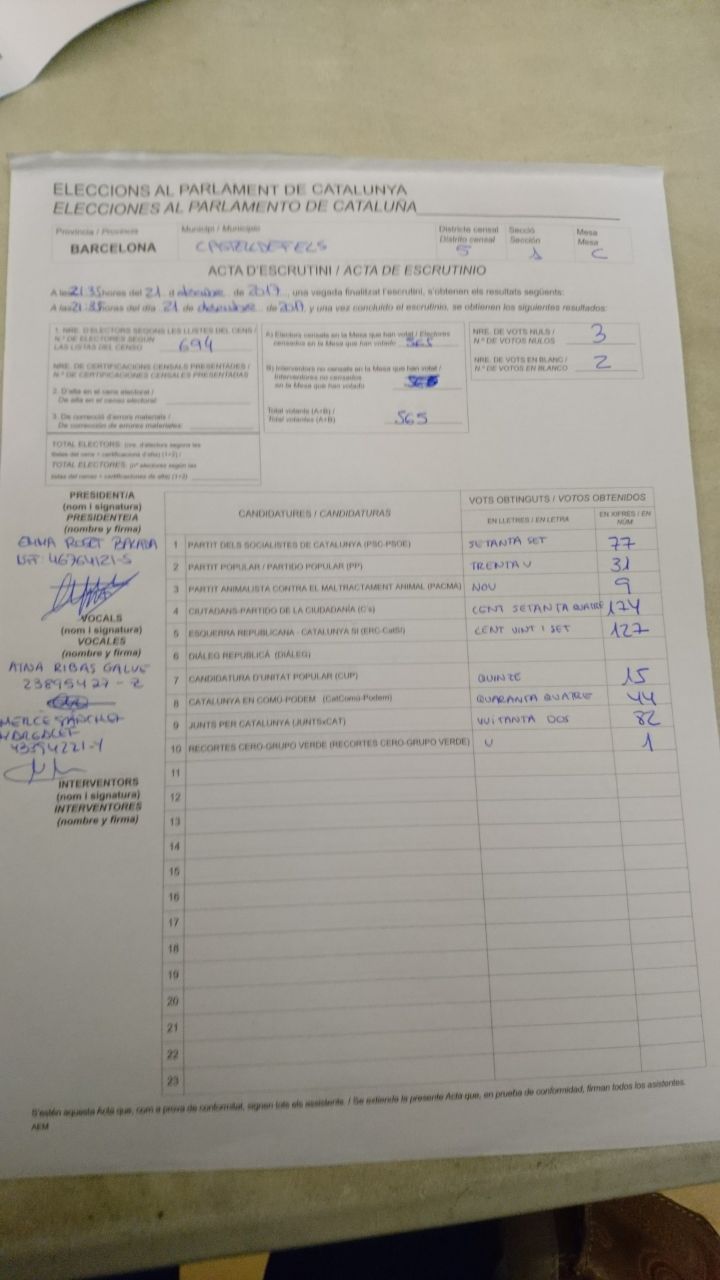 ELECCIONS AL PARLAMENT DE CATALUNYA
ELECCIONES AL PARLAMENTO DE CATALUÑA
Província / Provincia
BARCELONA
Municipi / Municipio
CASTELLDEFELS
Districte censal
Distrito censal
5
Secció
Sección
1
Mesa
Mesa
C
ACTA D'ESCRUTINI / ACTA DE ESCRUTINIO
A les 21:35 hores del 21 d desembre de 2017, una vegada finalitzat l'escrutini, s'obtenen els resultats següents:
A las 21:35 horas del día 21 de desembre de 2017, y una vez concluido el escrutinio, se obtienen los siguientes resultados:
1. NRE. D'ELECTORS SEGONS LES LLISTES DEL CENS /
N.º DE ELECTORES SEGÚN
LAS LISTAS DEL CENSO 694
NRE. DE CERTIFICACIONS CENSALS PRESENTADES /
N.º DE CERTIFICACIONES CENSALES PRESENTADAS
2. D'alta en el cens electoral /
De alta en el censo electoral
3. De correcció d'errors materials /
De corrección de errores materiales:
TOTAL ELECTORS: (nre. d'electors segons les
llistes del cens + certificacions d'alta) (1+2) /
TOTAL ELECTORES: (nº electores según las
listas del censo + certificaciones de alta) (1+2)
A) Electors censats en la Mesa que han votat / Electores
censados en la Mesa que han votado 565
B) Interventors no censats en la Mesa que han votat /
Interventores no censados
en la Mesa que han votado
Total votants (A+B) /
Total votantes (A+B) 565
NRE. DE VOTS NULS /
N.º DE VOTOS NULOS 3
NRE. DE VOTS EN BLANC /
N.º DE VOTOS EN BLANCO 2
PRESIDENT/A
(nom i signatura)
PRESIDENTE/A
(nombre y firma)
EMMA ROSET
46764121-S
VOCALS
(nom i signatura)
VOCALES
(nombre y firma)
AINA RIBAS GALVE
23895427-Z
MERCE SÁNCHEZ
43394221-Y
INTERVENTORS
(nom i signatura)
INTERVENTORES
(nombre y firma)
CANDIDATURES / CANDIDATURAS
VOTS OBTINGUTS / VOTOS OBTENIDOS
EN LLETRES / EN LETRA
EN XIFRES / EN NÚM
1 PARTIT DELS SOCIALISTES DE CATALUNYA (PSC-PSOE) SETANTA SET 77
2 PARTIT POPULAR / PARTIDO POPULAR (PP) TRENTA U 31
3 PARTIT ANIMALISTA CONTRA EL MALTRACTAMENT ANIMAL (PACMA) NOU 9
4 CIUTADANS-PARTIDO DE LA CIUDADANÍA (C's) CENT SETANTA QUATRE 174
5 ESQUERRA REPUBLICANA - CATALUNYA SÍ (ERC-CatSí) CENT VINT I SET 127
6 DIÀLEG REPUBLICÀ (DIÀLEG)
7 CANDIDATURA D'UNITAT POPULAR (CUP) QUINZE 15
8 CATALUNYA EN COMÚ-PODEM (CatComú-Podem) QUARANTA QUATRE 44
9 JUNTS PER CATALUNYA (JUNTSxCAT) VUITANTA DOS 82
10 RECORTES CERO-GRUPO VERDE (RECORTES CERO-GRUPO VERDE) U 1
11
12
13
14
15
16
17
18
19
20
21
22
23
S'estén aquesta Acta que, com a prova de conformitat, signen tots els assistents. / Se extiende la presente Acta que, en prueba de conformidad, firman todos los asistentes.
AEM